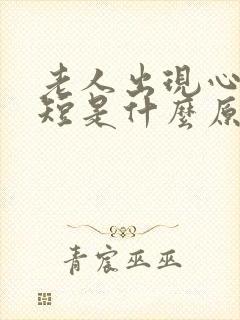 老人出現心
短是什麼原
青宸巫巫